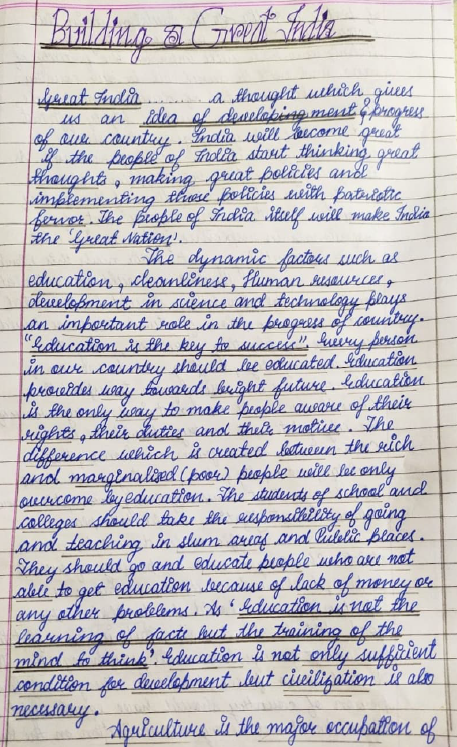 Building a Great India
Great India ...... a thought which gives
us an idea of developingment & progress
of our country. India will become great
if the people of India start thinking great
thoughts, making great policies and
implementing those policies with patriotic
fervor. The people of India itself will make India
the 'Great Nation'.
The dynamic factors such as
education, cleanliness, Human resources,
development in science and technology plays
an important role in the progress of country.
"Education is the key to success". Every person
in our country should be educated. Education
provides way towards bright future. Education
is the only way to make people aware of their
rights, their duties and their motive. The
difference which is created between the rich
and marginalised (poor) people will be only
overcome by education. The students of school and
colleges should take the responsibility of going
and teaching in slum areas and Public places.
They should go and educate people who are not
able to get education because of lack of money or
any other problems. As 'Education is not the
learning of facts but the training of the
mind to think'. Education is not only sufficient
condition for development but civilization is also
necessary.
Agriculture is the major occupation of